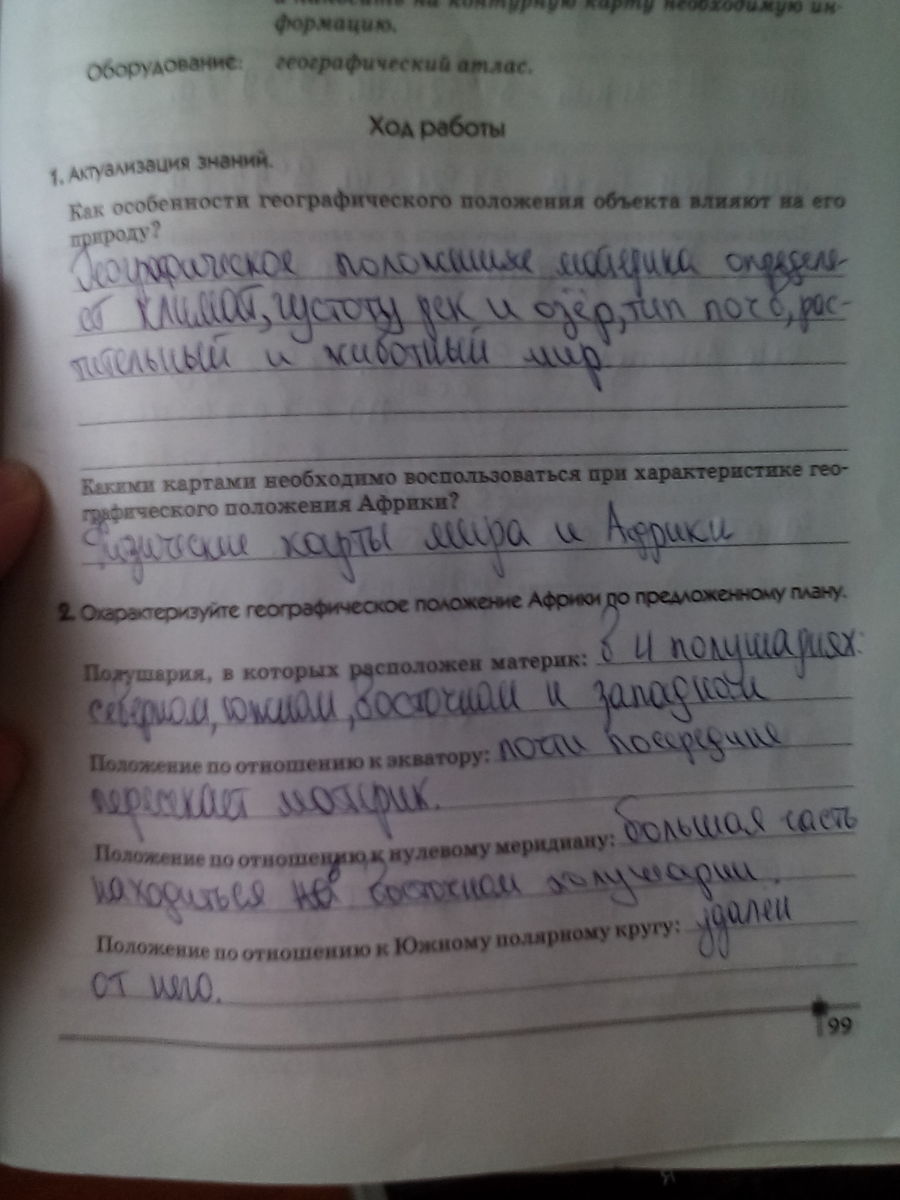 и наносить на контурную карту необходимую ин-
формацию.
Оборудование: географический атлас.
Ход работы
1. Актуализация знаний.
Как особенности географического положения объекта влияют на его
природу?
Географическое положение материка определя-
ет климат, густоту рек и озёр, тип почв, рас-
тительный и животный мир
Какими картами необходимо воспользоваться при характеристике гео-
графического положения Африки?
Физические карты мира и Африки
2. Охарактеризуйте географическое положение Африки по предложенному плану.
Полушария, в которых расположен материк: в 4 полушариях:
северном, южном, восточном и западном
Положение по отношению к экватору: почти посередине
пересекает материк.
Положение по отношению к нулевому меридиану: большая часть
находиться в восточном полушарии.
Положение по отношению к Южному полярному кругу: удален
от него.
99